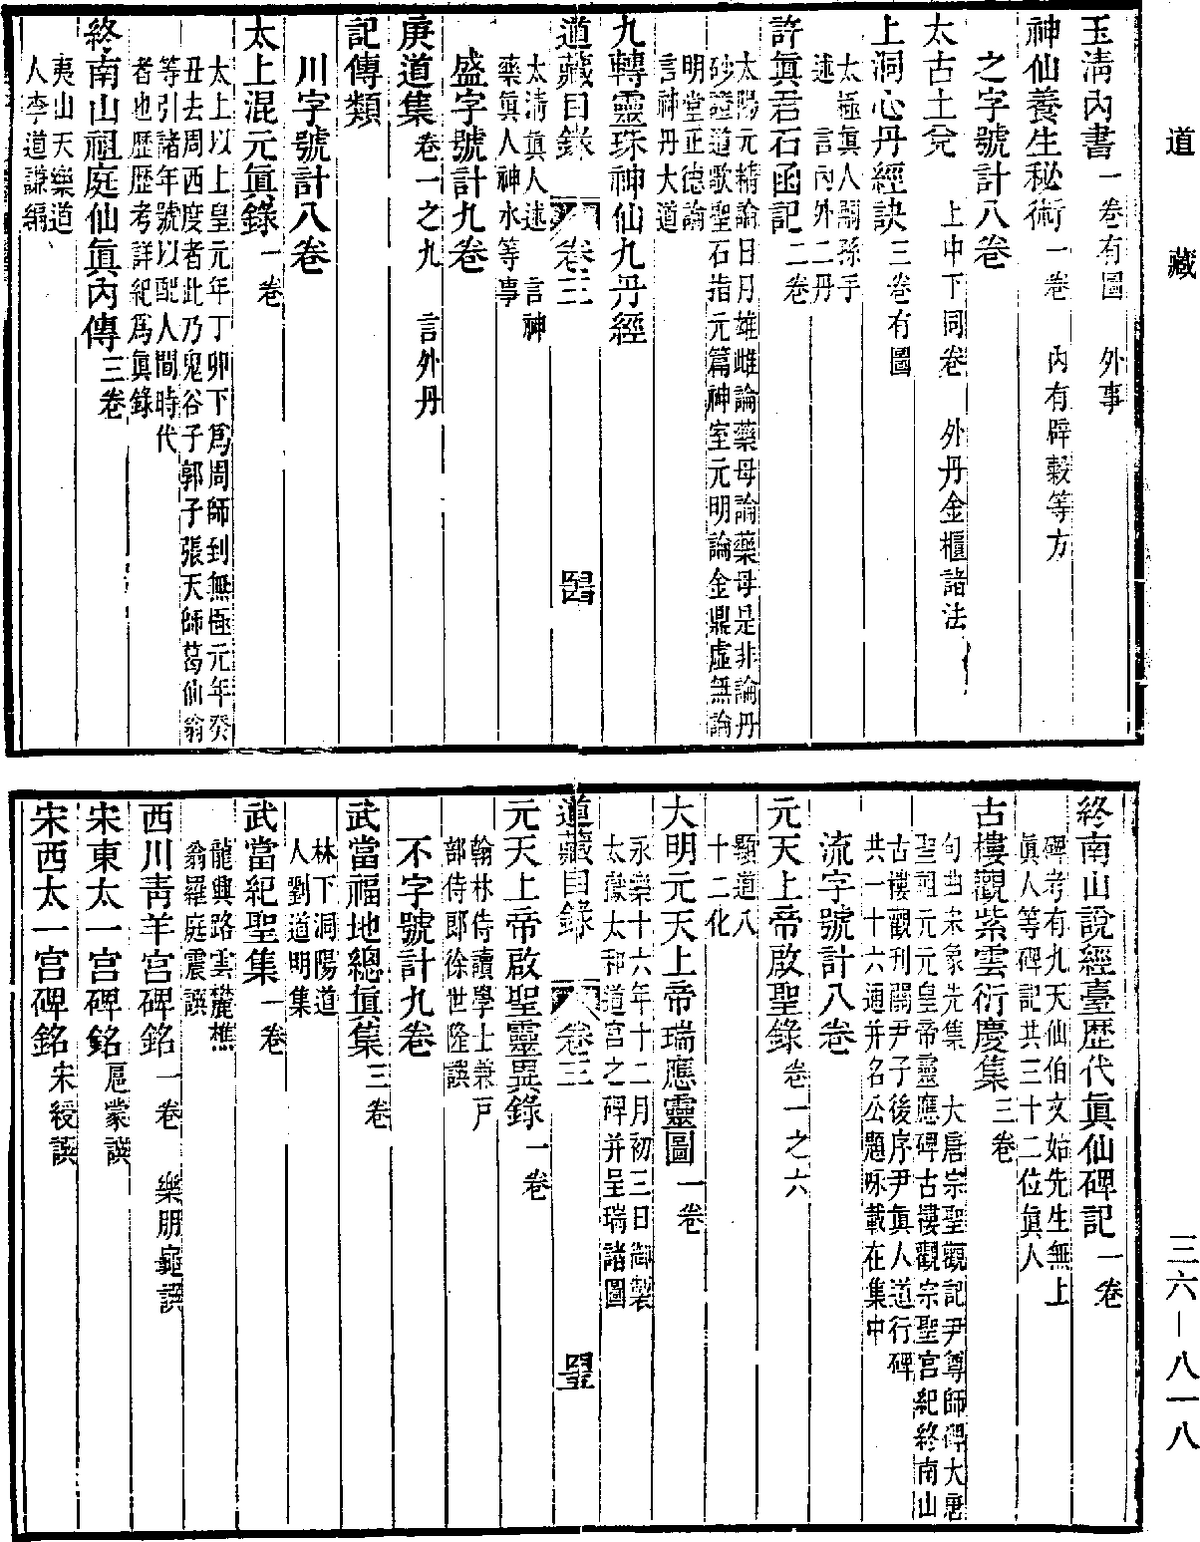 道藏
三六—八一八
玉淸內書一卷有圖　外事
神仙養生秘術一卷　內有辟穀等方
之字號計八卷
太古土兌　上中下同卷　外丹金櫃諸法
上洞心丹經訣三卷有圖
太極眞人嗣孫手
述　言內外二丹
許眞君石函記二卷
太陽元精論日月雄雌論藥母論藥母是非論丹
砂證道歌聖石指元篇神室元明論金鼎虛無論
明堂正德論
言神丹大道
九轉靈珠神仙九丹經
道藏目錄　卷三
太淸眞人述　言神
藥眞人神水等事
盛字號計九卷
庚道集卷一之九　言外丹
記傳類
川字號計八卷
太上混元眞錄一卷
太上以上皇元年丁卯下爲周師到無極元年癸
丑去周西度者此乃鬼谷子郭子張天師葛仙翁
等引諸年號以配人間時代
者也歷歷考詳紀爲眞錄
終南山祖庭仙眞內傳三卷
夷山天樂道
人李道謙編
終南山說經臺歷代眞仙碑記一卷
碑考有九天仙伯文始先生無上
眞人等碑記共三十二位眞人
古樓觀紫雲衍慶集三卷
句曲朱象先集　大唐宗聖觀記尹尊師碑大唐
聖祖元元皇帝靈應碑古樓觀宗聖宮紀終南山
古樓觀刋關尹子後序尹眞人道行碑
共一十六通并名公題咏載在集中
流字號計八卷
元天上帝啟聖錄卷一之六
顯道八
十二化
大明元天上帝瑞應靈圖一卷
永樂十六年十二月初三日御製
太嶽太和道宮之碑并呈瑞諸圖
道藏目錄　卷三
元天上帝啟聖靈異錄一卷
翰林侍讀學士兼戶
部侍郎徐世隆譔
不字號計九卷
武當福地總眞集三卷
林下洞陽道
人劉道明集
武當紀聖集一卷
龍興路雲麓樵
翁羅庭震譔
西川靑羊宮碑銘一卷　樂朋龜譔
宋東太一宮碑銘扈蒙譔
宋西太一宮碑銘宋綬譔